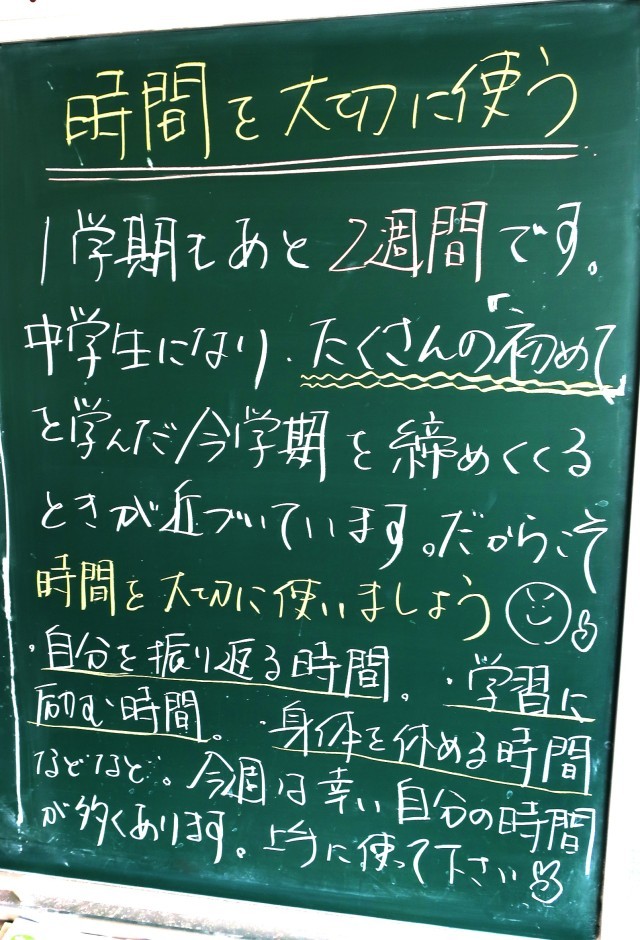 時間を大切に使う
1学期もあと2週間です。
中学生になり、たくさんの「初めて」
を学んだ今学期を締めくくる
ときが近づいています。だからこそ
時間を大切に使いましょう
・自分を振り返る時間。・学習に
励む時間。・身体を休める時間
などなど。今週は幸い自分の時間
が多くあります。上手に使って下さい